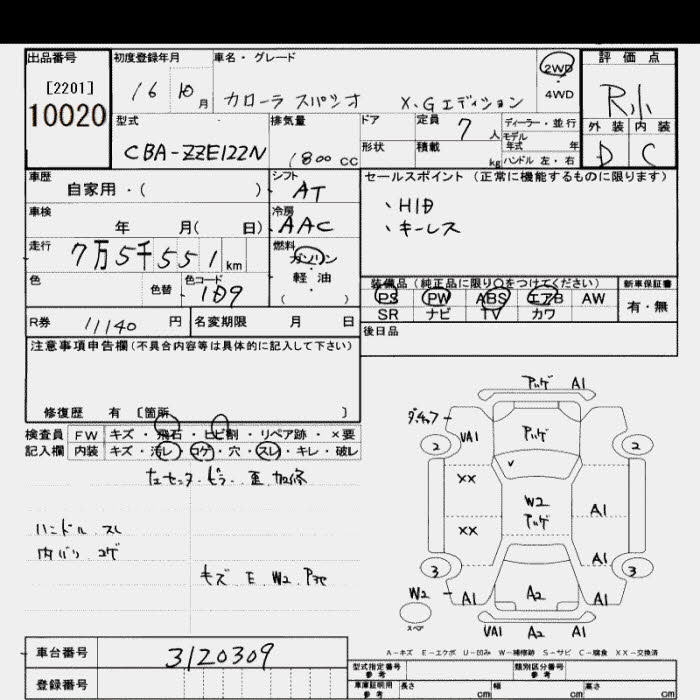 出品番号
[2201]
10020
初度登録年月
16 10 月
車名・グレード
カローラ スパシオ X.Gエディション
2WD
4WD
評価点
R小
外装 内装
D C
型式
CBA-ZZE122N
排気量
1800 CC
ドア
形状
定員 7 人
積載 kg
ディーラー・並行
モデル年式 年
ハンドル 左・右
車歴
自家用・( )
シフト
AT
車検
年 月( 日)
冷房
AAC
走行
7万5千551 km
燃料
ガソリン
軽油
( )
色
色替
色コード
1D9
セールスポイント(正常に機能するものに限ります)
、HID
、キーレス
装備品(純正品に限り○をつけてください)
PS PW ABS エアB AW
SR ナビ TV カワ
新車保証書
有・無
R券 11140 円
名変期限 月 日
後日品
注意事項申告欄(不具合内容等は具体的に記入して下さい)
修復歴 有 [箇所 ]
検査員
記入欄
FW キズ・飛石・ヒビ割・リペア跡・×要
内装 キズ・汚レ・コゲ・穴・スレ・キレ・破レ
ハンドル スレ
内バリ コゲ
キズ E W2
アハゲ A1
VA1
アハゲ
2
2
XX
XX
W2
アハゲ
A1
A1
3
3
W2
A1
A2
A1
スペア
VA1 A2 A1
A-キズ E-エクボ U-凹み W-補修跡 S-サビ C-腐食 XX-交換済
車台番号
3120309
登録番号
型式指定番号
参考
類別区分番号
参考
車庫証明用
参考
長さ cm
幅 cm
高さ cm